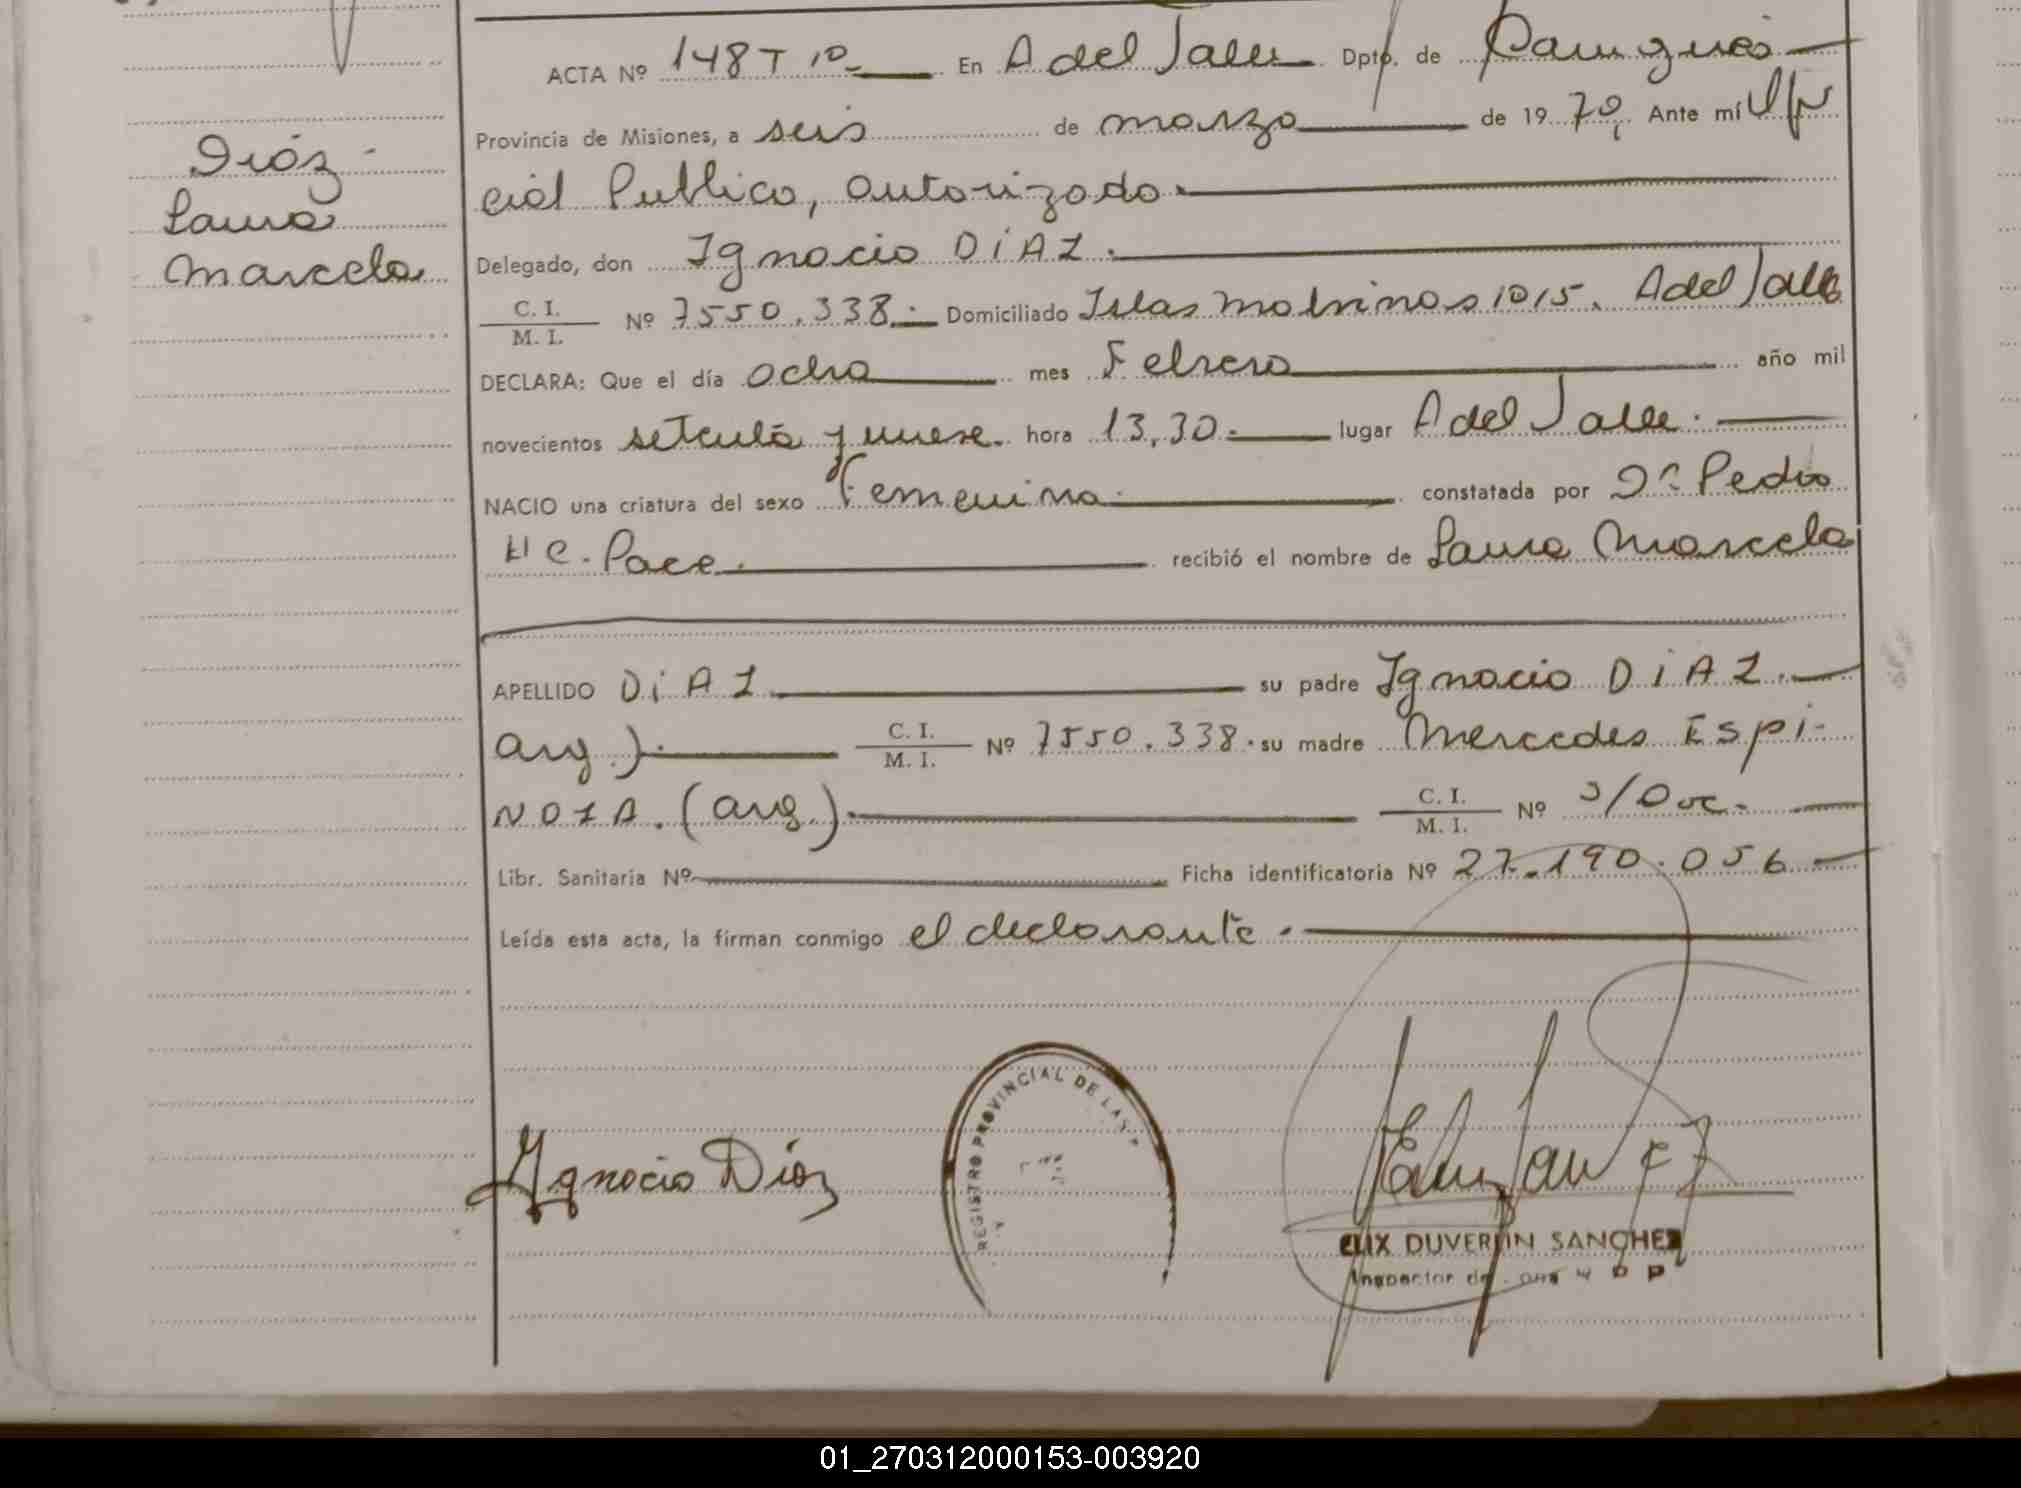 ACTA Nº 148 T 1º En A del Valle Dpto. de Cainguás
Provincia de Misiones, a seis de marzo de 1979, Ante mí Ofi
cial Publico, autorizado.
Díaz
Laura
Marcela
Delegado, don Ignacio DíAZ.
C. I.
M. I. Nº 7550.338. Domiciliado Islas Malvinas 1015. A del Valle
DECLARA: Que el día ocho mes Febrero año mil
novecientos setenta y nueve. hora 13,30. lugar A del Valle.
NACIO una criatura del sexo Femenino constatada por Dr Pedro
H C. Pace. recibió el nombre de Laura Marcela
APELLIDO DíAZ su padre Ignacio DíAZ.
arg.). C. I.
M. I. Nº 7550.338. su madre Mercedes Espi-
NOZA. (arg.). C. I.
M. I. Nº S/Doc.
Libr. Sanitaria Nº Ficha identificatoria Nº 27.190.056
Leída esta acta, la firman conmigo el declarante.
REGISTRO PROVINCIAL DE LAS P
Ignacio Díaz
ELIX DUVERLIN SANCHEZ
Inspector de
01_270312000153-003920